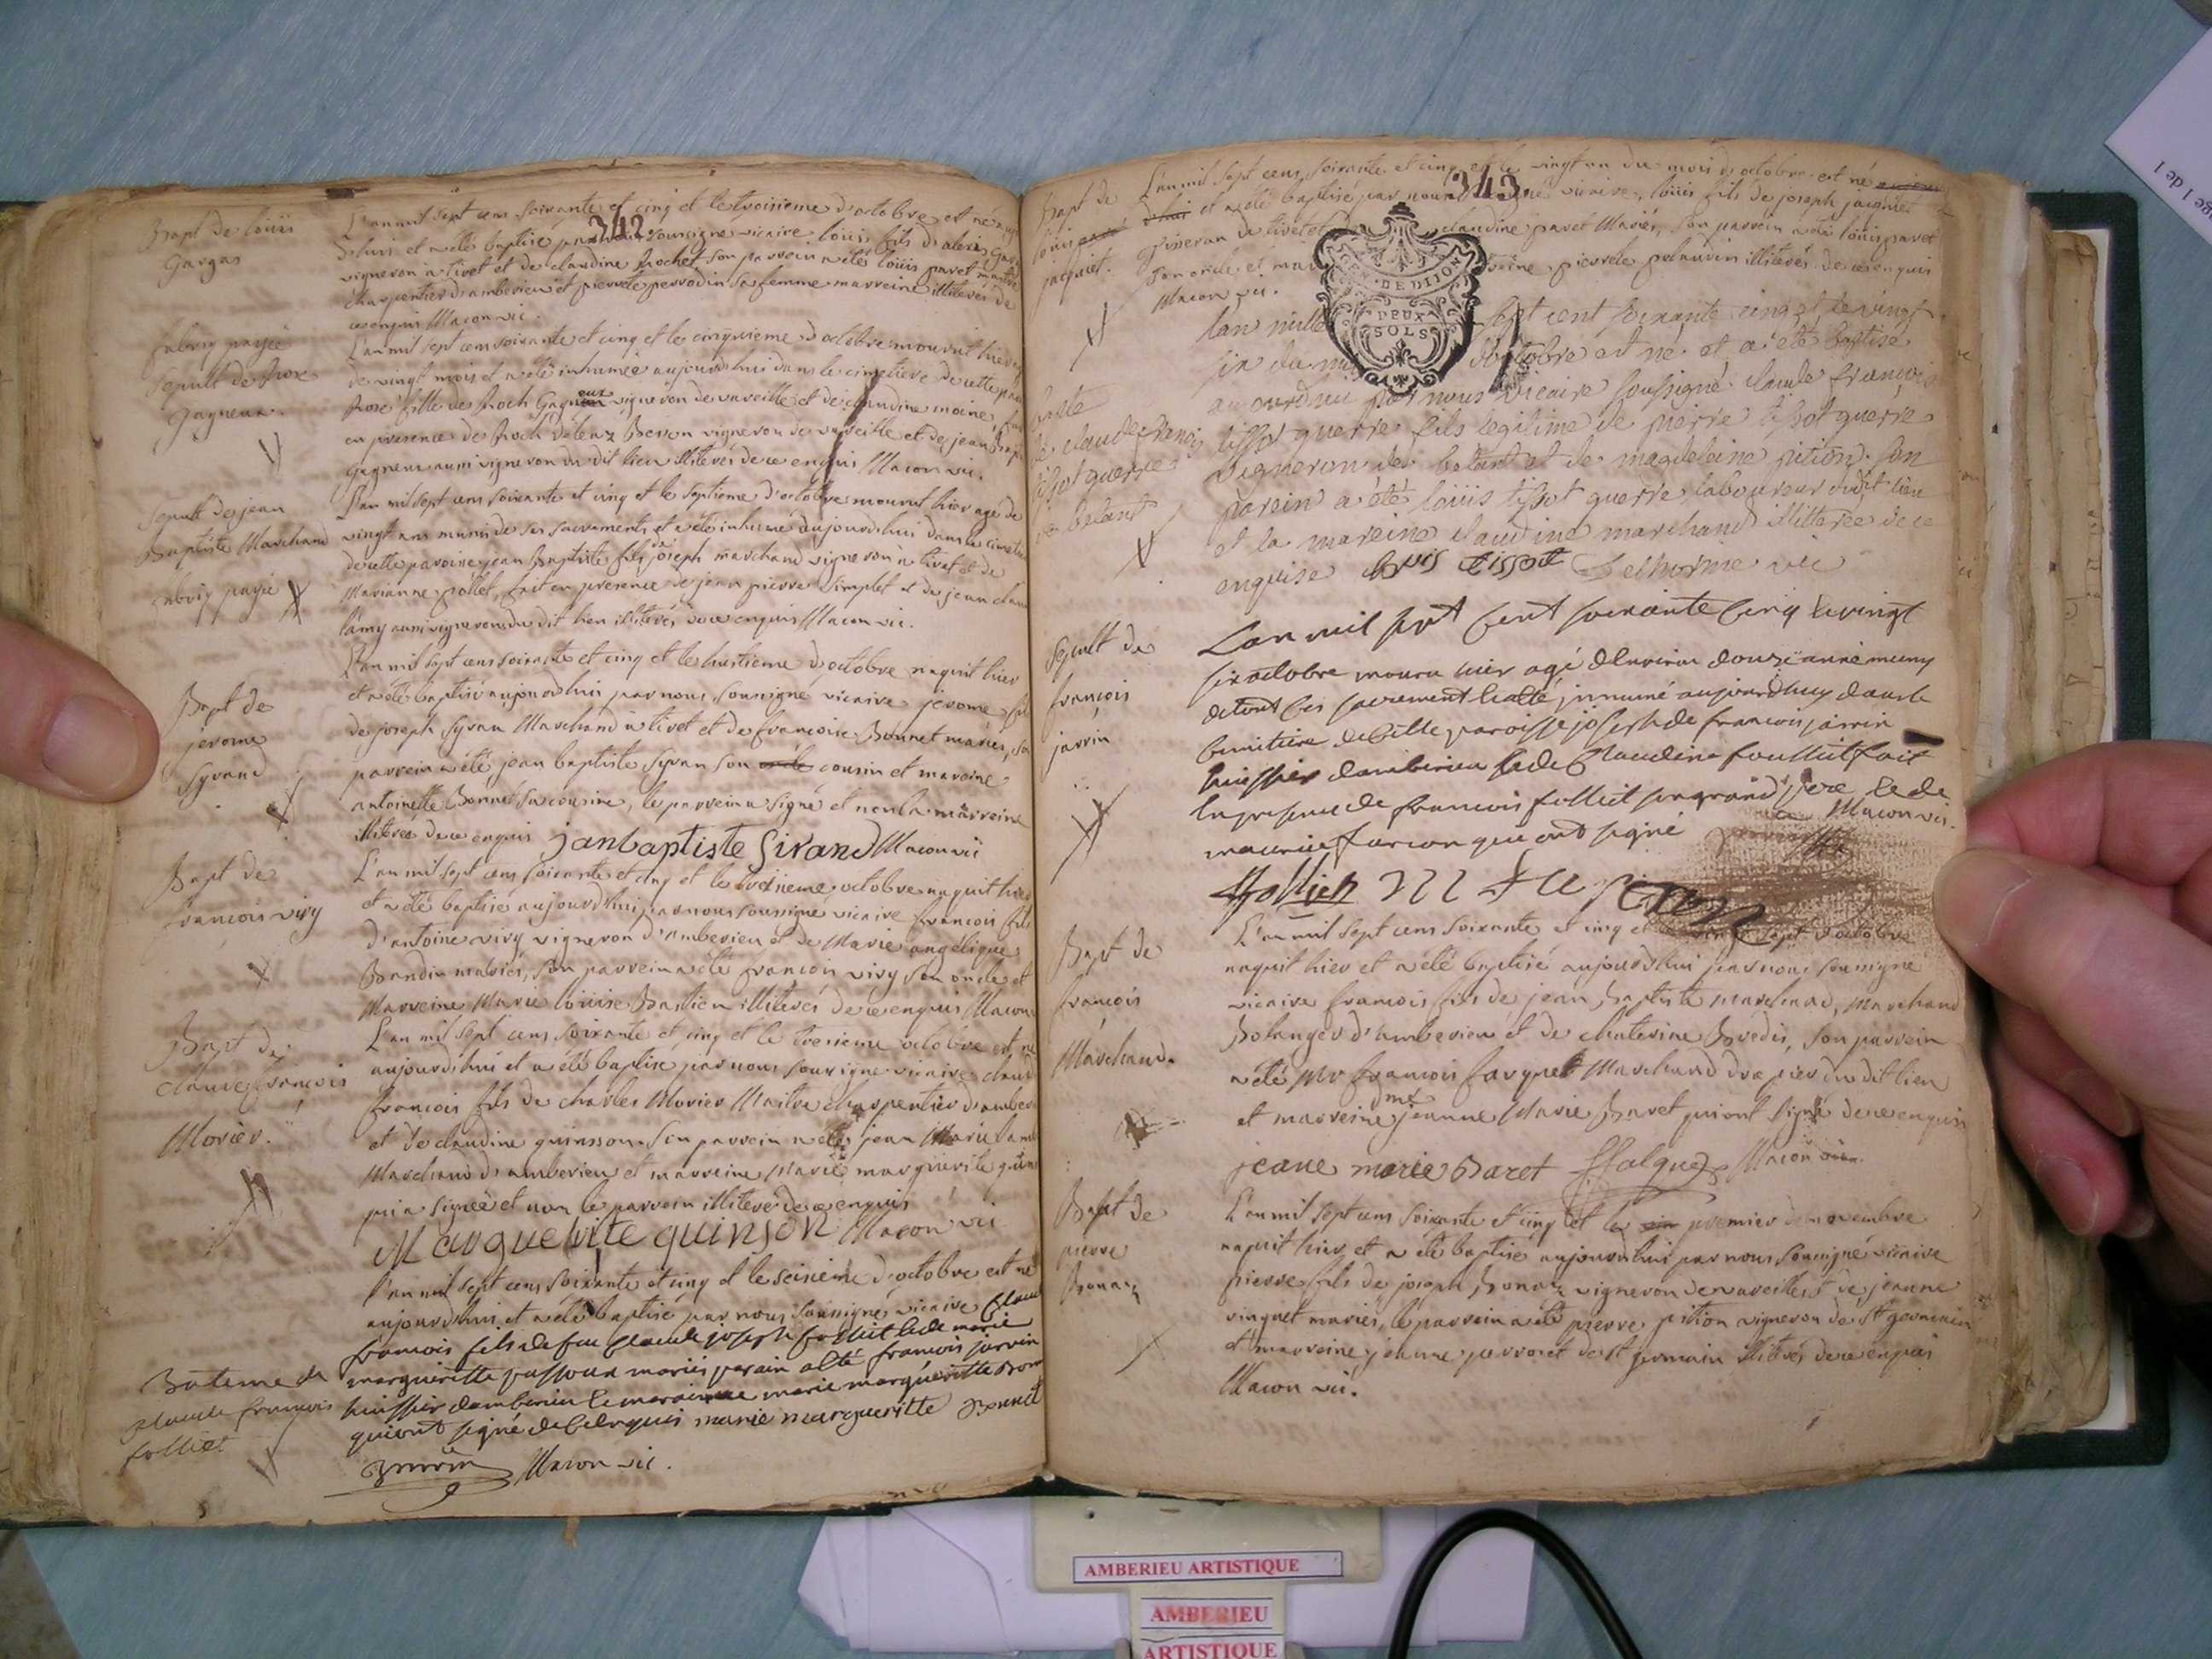 342
Bapt de loüis
Gargas
L'an mil sept cens soixante et cinq et le troisieme d'octobre est né
d'hui et a été baptisé par nous soussigné vicaire loüis fils d'alexis
vigneron à tiret et de claudine Rochet son parrein a été loüis paret maitre
charpentier d'amberieu et pierrete perrodin sa femme marreine illiterés de
ce enquis Macon vic.
fabriq payée
sepult de Rose
Gagneux
L'an mil sept cens soixante et cinq et le cinquieme d'octobre mourut hier
de vingt mois et a été inhumée aujourd'hui dans le cimetiere de cette
Rose fille de Roch Gagneux vigneron de vareille et de claudine moine,
en presence de Roch Besson vigneron de vareille et de jean
Gagneux aussi vigneron du dit lieu illiterés de ce enquis Macon vic.
sepult de jean
Baptiste Marchand
fabriq payée
L'an mil sept cens soixante et cinq et le septieme d'octobre mourut hier agé de
vingt ans muni de ses sacrements et a été inhumé aujourd'hui dans le
de cette paroisse jean Baptiste fils de joseph marchand vigneron à tiret et de
Marianne pollet, fait en presence de jean pierre simplet et de jean
lamy aussi vignerons du dit lieu illiterés de ce enquis Macon vic.
Bapt de
jerome
Syrand
L'an mil sept cens soixante et cinq et le huitieme d'octobre naquit hier
et a été baptisé aujourd'hui par nous soussigné vicaire jerome
de joseph Syran Marchand à tiret et de francoise Bonnet mariés, son
parrein a été jean baptiste Syran son oncle cousin et mareine
antoinette Bonnet sa cousine, le parrein a signé et non la marreine
illiterée de ce enquis janbaptiste Sirand Macon vic
Bapt de
francois viry
L'an mil sept cens soixante et cinq et le treisieme octobre naquit hier
et a été baptisé aujourd'hui par nous soussigné vicaire francois fils
d'antoine viry vigneron d'amberieu et de Marie angelique
Bandin mariés, son parrein a été francois viry son oncle et
Marreine Marie loüise Bastien illiterés de ce enquis Macon
Bapt de
claude francois
Morier.
L'an mil sept cens soixante et cinq et le treisieme octobre est né
aujourd'hui et a été baptisé par nous soussigné vicaire
francois fils de charles Morier Maitre charpentier
et de claudine guinsson son parrein a été jean Marie
Marchand d'amberieu et marreine Marie marguerite
qui a signée et non le parrein illiteré de ce enquis
Marguerite quinson Macon vic
l'an mil sept cens soixante et cinq et le seisieme d'octobre est né
aujourd'hui et a été baptisé par nous soussigné vicaire
Bateme de
claude francois
folliet
francois fils de feu claude joseph folliet et de marie
margueritte passoux mariés parain a été francois jarrin
huissier damberieu la maraine marie margueritte
qui ont signé de ce enquis marie margueritte Bonnet
Jarrin Macon vic.
343
Bapt de
loüis
jacquiet.
L'an mil sept cens soixante et cinq et le vingt un du mois d'octobre est né
d'hui et a été baptisé par nous vicaire, loüis fils de joseph jacquiet
vigneron de tiret et claudine paret Mariés, son parrein a été loüis paret
son oncle et pierrete illiterés de ce enquis
Macon vic.
GEN. DE DIJON
DEUX
SOLS
Bapte
de claude francois
tissot guerre
de betant
lan mille sept cent soixante cinq et le vingt
six du mois d'octobre est né et a été baptisé
aujourdhui par nous vicaire soussigné claude françois
tissot guerre fils legitime de pierre tissot guerre
vigneron de betant et de magdeleine pition son
parein a été loüis tissot guerre laboureur dudit lieu
et la mareine claudine marchand illitterée de ce
enquise louis tissot vic
sepult de
françois
jarrin
Lan mil sept cent soixante cinq le vingt
six octobre mouru hier agé denviron douze année muny
de tout ses sacrement et a été jnhumé aujourdhuy dans le
cimitiere de cette paroisse joseph de francois jarrin
huissier damberieu et de claudine folliet fait
en presence de francois folliet son grand pere et de
maurice furion qui ont signé Macon vic.
folliet M furion
Bapt de
francois
Marchand.
L'an mil sept cens soixante et cinq et le vingt sept d'octobre
naquit hier et a été baptisé aujourd'hui par nous soussigné
vicaire francois fils de jean Baptiste Marchand, Marchand
Bolanger d'amberieu et de chaterine Bredis, son parrein
a été Mr francois Marchand drapier du dit lieu
et marreine dme jeanne Marie Baret qui ont signé de ce enquis
jeane marie Baret Macon
Bapt de
pierre
Bonaz
L'an mil sept cens soixante et cinq et le premier de novembre
naquit hier et a été baptisé aujourd'hui par nous soussigné vicaire
pierre fils de joseph Bonaz vigneron de vareille et de jeanne
vinquet mariés, le parrein a été pierre pition vigneron de St germain
et marreine jeanne perroset de st germain illiterés de ce enquis
Macon vic.
AMBERIEU ARTISTIQUE
AMBERIEU
ARTISTIQUE